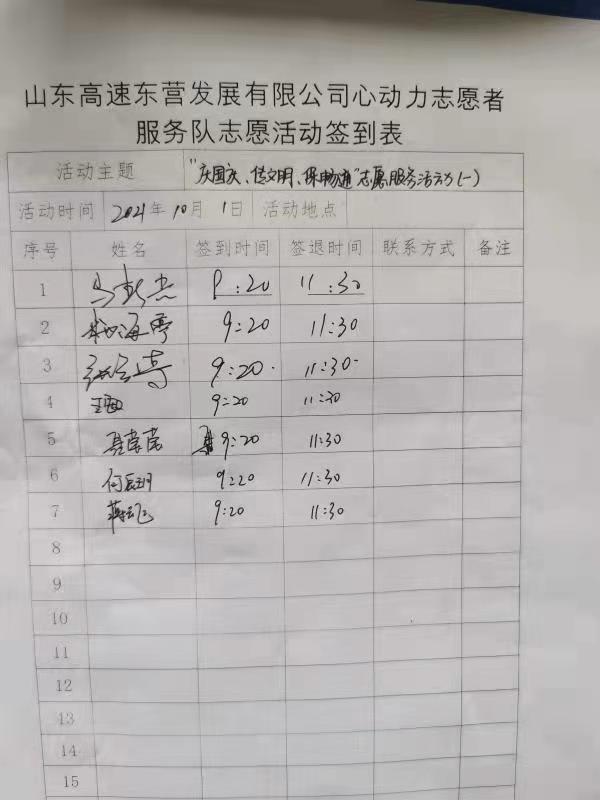 山东高速东营发展有限公司心动力志愿者
服务队志愿活动签到表
活动主题 "庆国庆、传文明、保畅通"志愿服务活动(一)
活动时间 2021年10月1日 活动地点
序号 姓名 签到时间 签退时间 联系方式 备注
1 :20 11:30
2 海 9:20 11:30
3 9:20 11:30
4 9:20 11:30
5 9:20 11:30
6 何 9:20 11:30
7 9:20 11:30
8
9
10
11
12
13
14
15